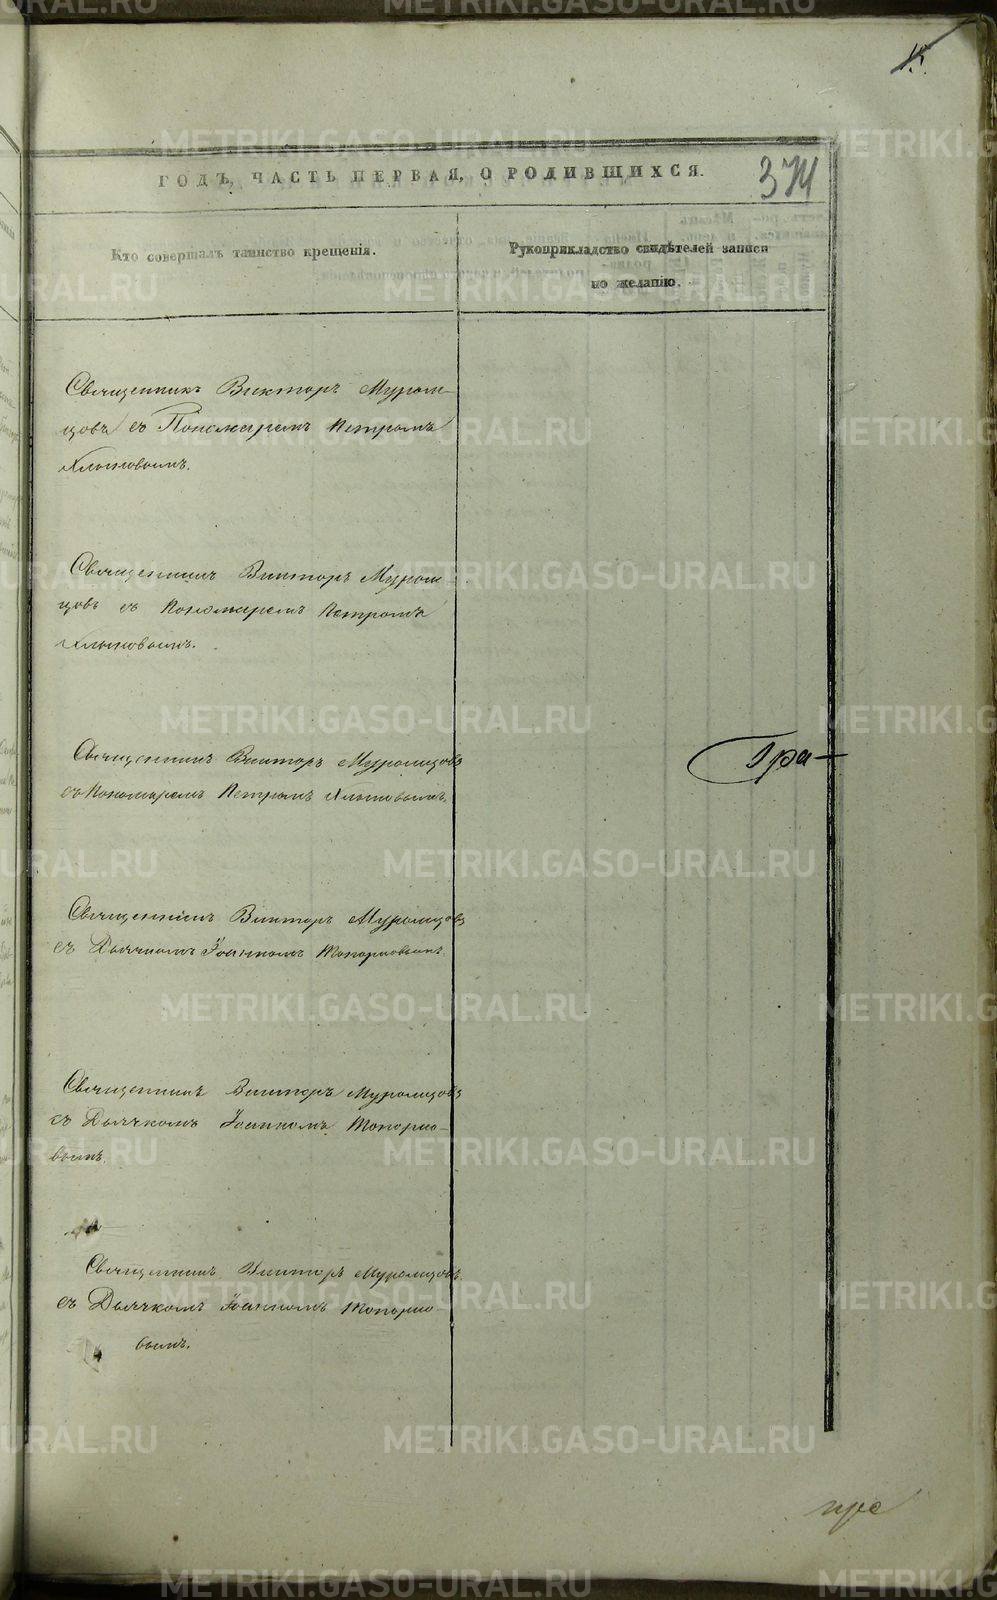 15.
ГОДЪ, ЧАСТЬ ПЕРВАЯ, О РОДИВШИХСЯ.
374
Кто совершалъ таинство крещенія.
Рукоприкладство свидѣтелей записи
по желанію.
Священникъ Викторъ Муром-
цовъ съ Пономаремъ Петромъ
Хлыновымъ.
Священникъ Викторъ Муром-
цовъ съ Пономаремъ Петромъ
Хлыновымъ.
Священникъ Викторъ Муромцовъ
съ Пономаремъ Петромъ Хлыновымъ.
Гра-
Священникъ Викторъ Муромцовъ
съ Дьячкомъ Іоанномъ Топорковымъ.
Священникъ Викторъ Муромцовъ
съ Дьячкомъ Іоанномъ Топорко-
вымъ.
Священникъ Викторъ Муромцовъ
съ Дьячкомъ Іоанномъ Топорко-
вымъ.
METRIKI.GASO-URAL.RU